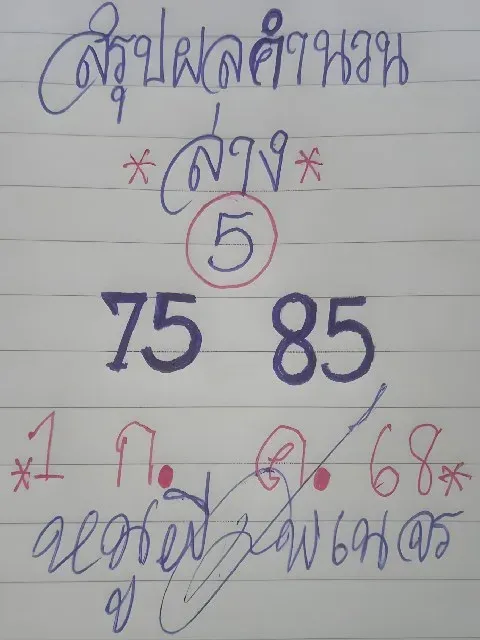 สรุปผลคำนวน
*ล่าง*
5
75 85
*1 ก. ค. 68*
หนูผีพเนจร